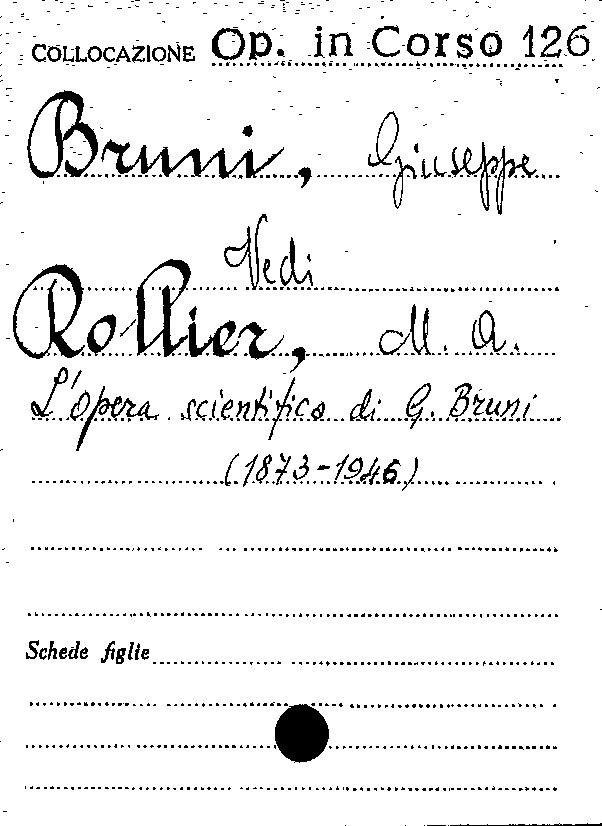 COLLOCAZIONE Op. in Corso 126
Bruni, Giuseppe
Vedi
Rollier, M. A.
L'opera scientifica di G. Bruni
(1873-1946)
Schede figlie